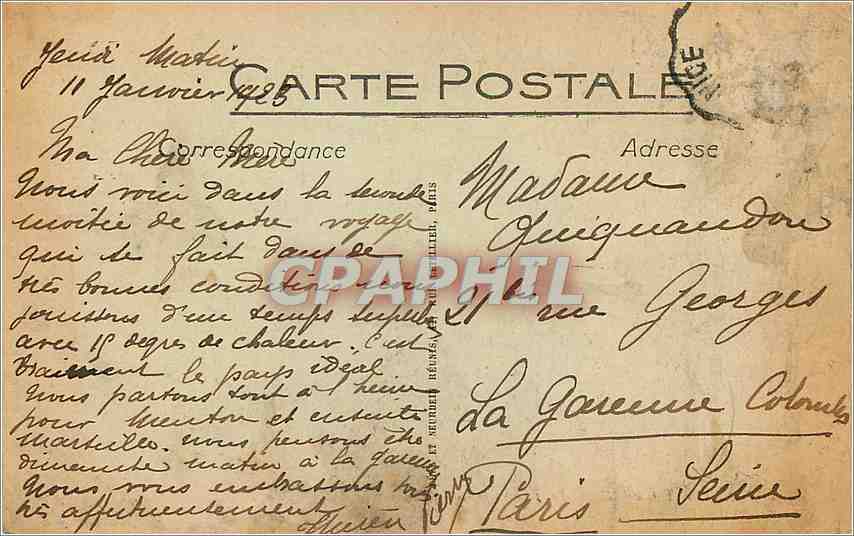 Jeudi Matin
11 Janvier 1923
CARTE POSTALE
NICE
Correspondance
Adresse
Ma Chère Mère
Nous voici dans la seconde
moitié de notre voyage
qui se fait dans de
très bonnes conditions nous
jouissons d'un temps superbe
avec 15 degrés de chaleur. C'est
vraiment le pays idéal
Nous partons tout à l'heure
pour Menton et ensuite
Marseille. nous pensons être
dimanche matin à la garenne
Nous vous embrassons tous
très affectueusement
Pierre
ET NEURDEIN RÉUNIS, PARIS
Madame
Quiquandon
21 bis rue Georges
La Garenne Colombes
Paris Seine
CPAPHIL